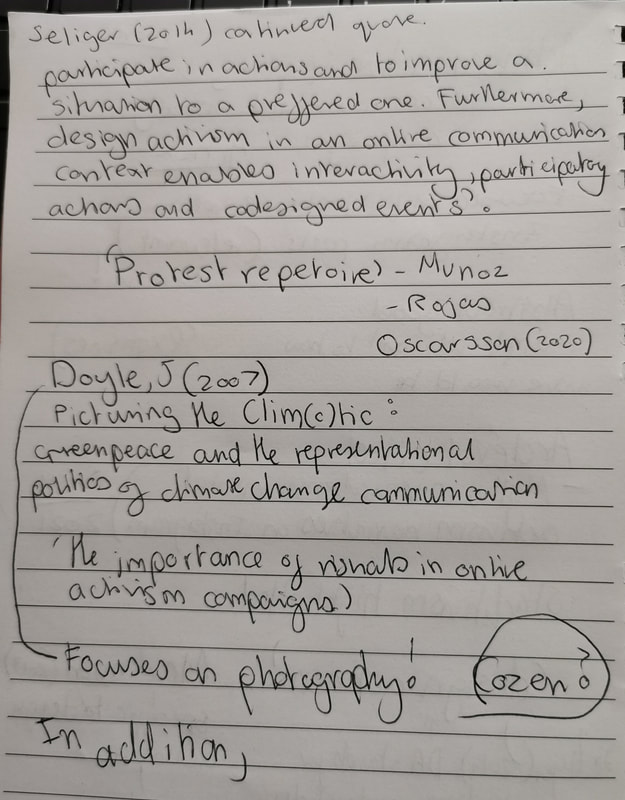 Seliger (2014) continued quote.
participate in actions and to improve a
situation to a preffered one. Furthermore,
design activism in an online communication
context enables interactivity, participatory
actions and codesigned events'.
'Protest repetoire' - Munoz
- Rojas
Oscarsson (2020)
Doyle, J (2007)
Picturing the Clim(c)tic :
Greenpeace and the representational
politics of climate change communication
'the importance of visuals in online
activism campaigns'
Focuses on photography!
Cozen?
In addition,